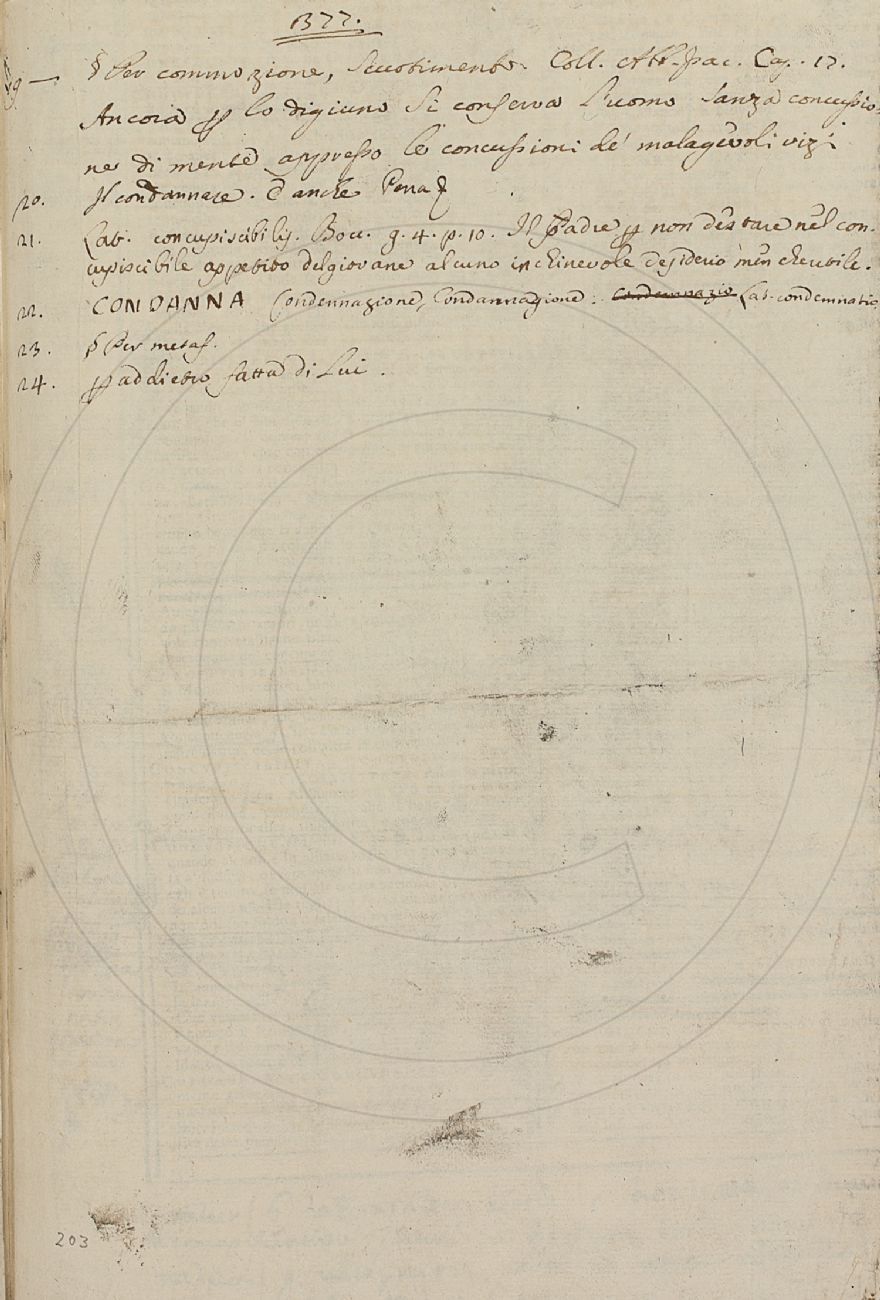 1377.
19 — § Per commozione, Scuotimento. Coll. Ab. Isac. Cap. 17.
Ancora p lo digiuno si conserva l'uomo sanza concussio-
ne di mente appresso le concussioni de' malagevoli vizi
20. Il condannare. E anche Pena
21. Lat. concupiscibilis. Bocc. g. 4. p. 10. Il padre p non destare nel con-
cupiscibile appetito del giovane alcuno inchinevole desiderio men che utile.
22. CONDANNA Condennazione, Condannagione: Condemnazio Lat. condemnatio
23. § Per metaf.
24. p addietro fatta di Lui.
203